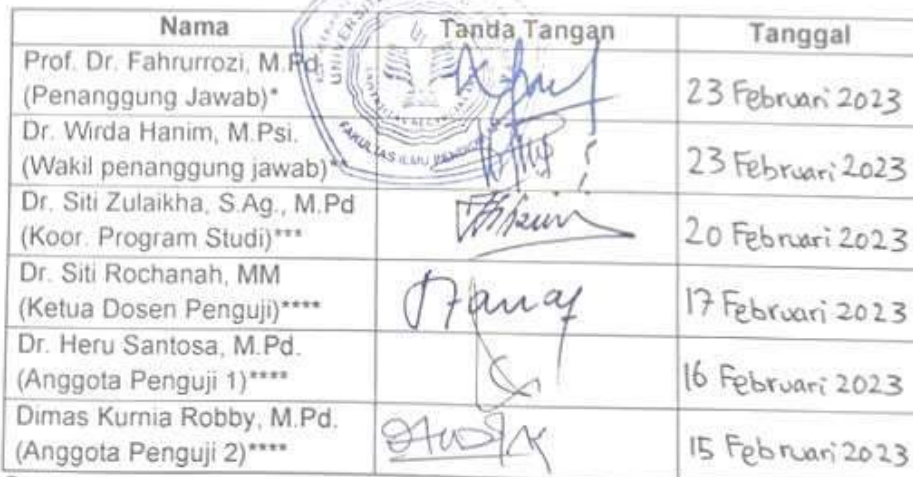 Nama Tanda Tangan Tanggal
Prof. Dr. Fahrurrozi, M.Pd.
(Penanggung Jawab)* 23 Februari 2023
Dr. Wirda Hanim, M.Psi.
(Wakil penanggung jawab)** 23 Februari 2023
Dr. Siti Zulaikha, S.Ag., M.Pd
(Koor. Program Studi)*** 20 Februari 2023
Dr. Siti Rochanah, MM
(Ketua Dosen Penguji)**** 17 Februari 2023
Dr. Heru Santosa, M.Pd.
(Anggota Penguji 1)**** 16 Februari 2023
Dimas Kurnia Robby, M.Pd.
(Anggota Penguji 2)**** 15 Februari 2023
FAKULTAS ILMU